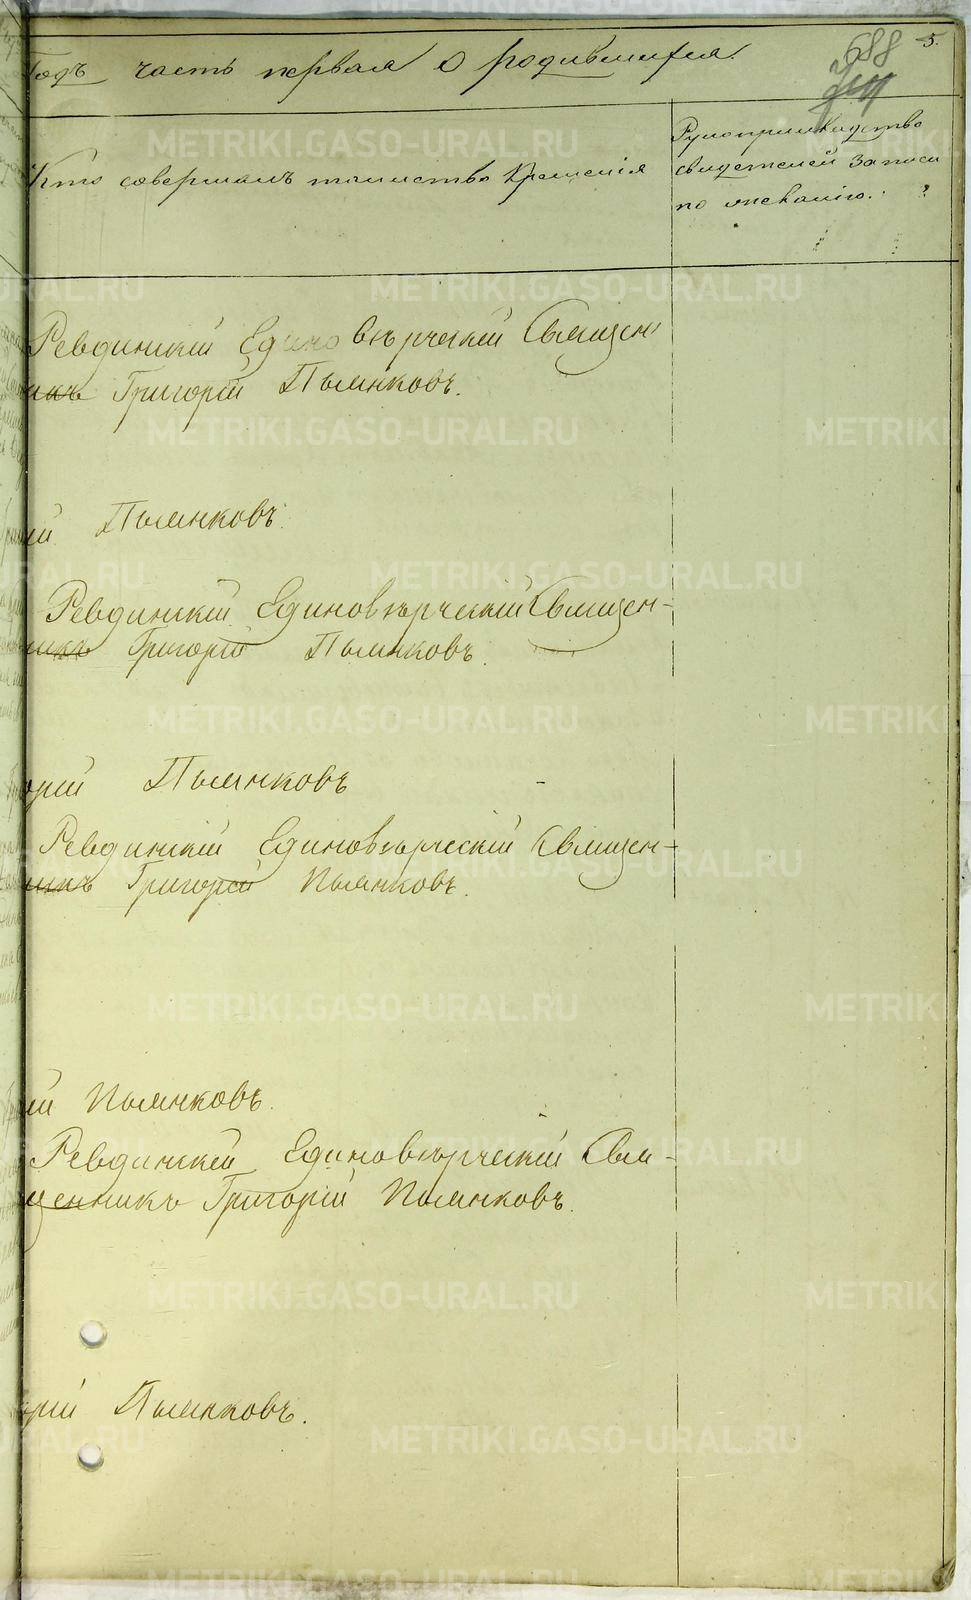 Годъ часть первая о родившихся. 688 5.
Кто совершалъ таинство крещенія
Рукоприкладство
свидетелей записи
по желанію.
Ревдинскій Единоверческій Священ
никъ Григорій Пьянковъ.
рій Пьянковъ.
Ревдинскій Единоверческій Священ-
никъ Григорій Пьянковъ.
орій Пьянковъ
Ревдинскій Единоверческій Священ-
никъ Григорій Пьянковъ.
рій Пьянковъ.
Ревдинскій Единоверческій Свя-
щенникъ Григорій Пьянковъ.
орій Пьянковъ.
METRIKI.GASO-URAL.RU